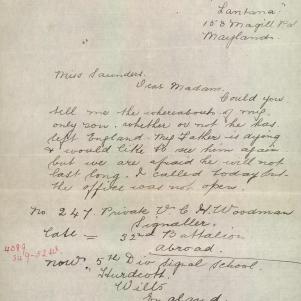 "Lantana"
153 Magill Rd
Maylands.
Miss Saunders.
Dear Madam.
Could you
tell me the whereabouts of my
only son. whether or not he has
left England. My Father is dying
& would like to see him again
but we are afraid he will not
last long. I called today but
the office was not open.
No 247. Private V. C. H. Woodman
Signaller.
Late = 32nd Battalion
Abroad.
now 5th Div Signal School.
Hurdcott
Wilts
England